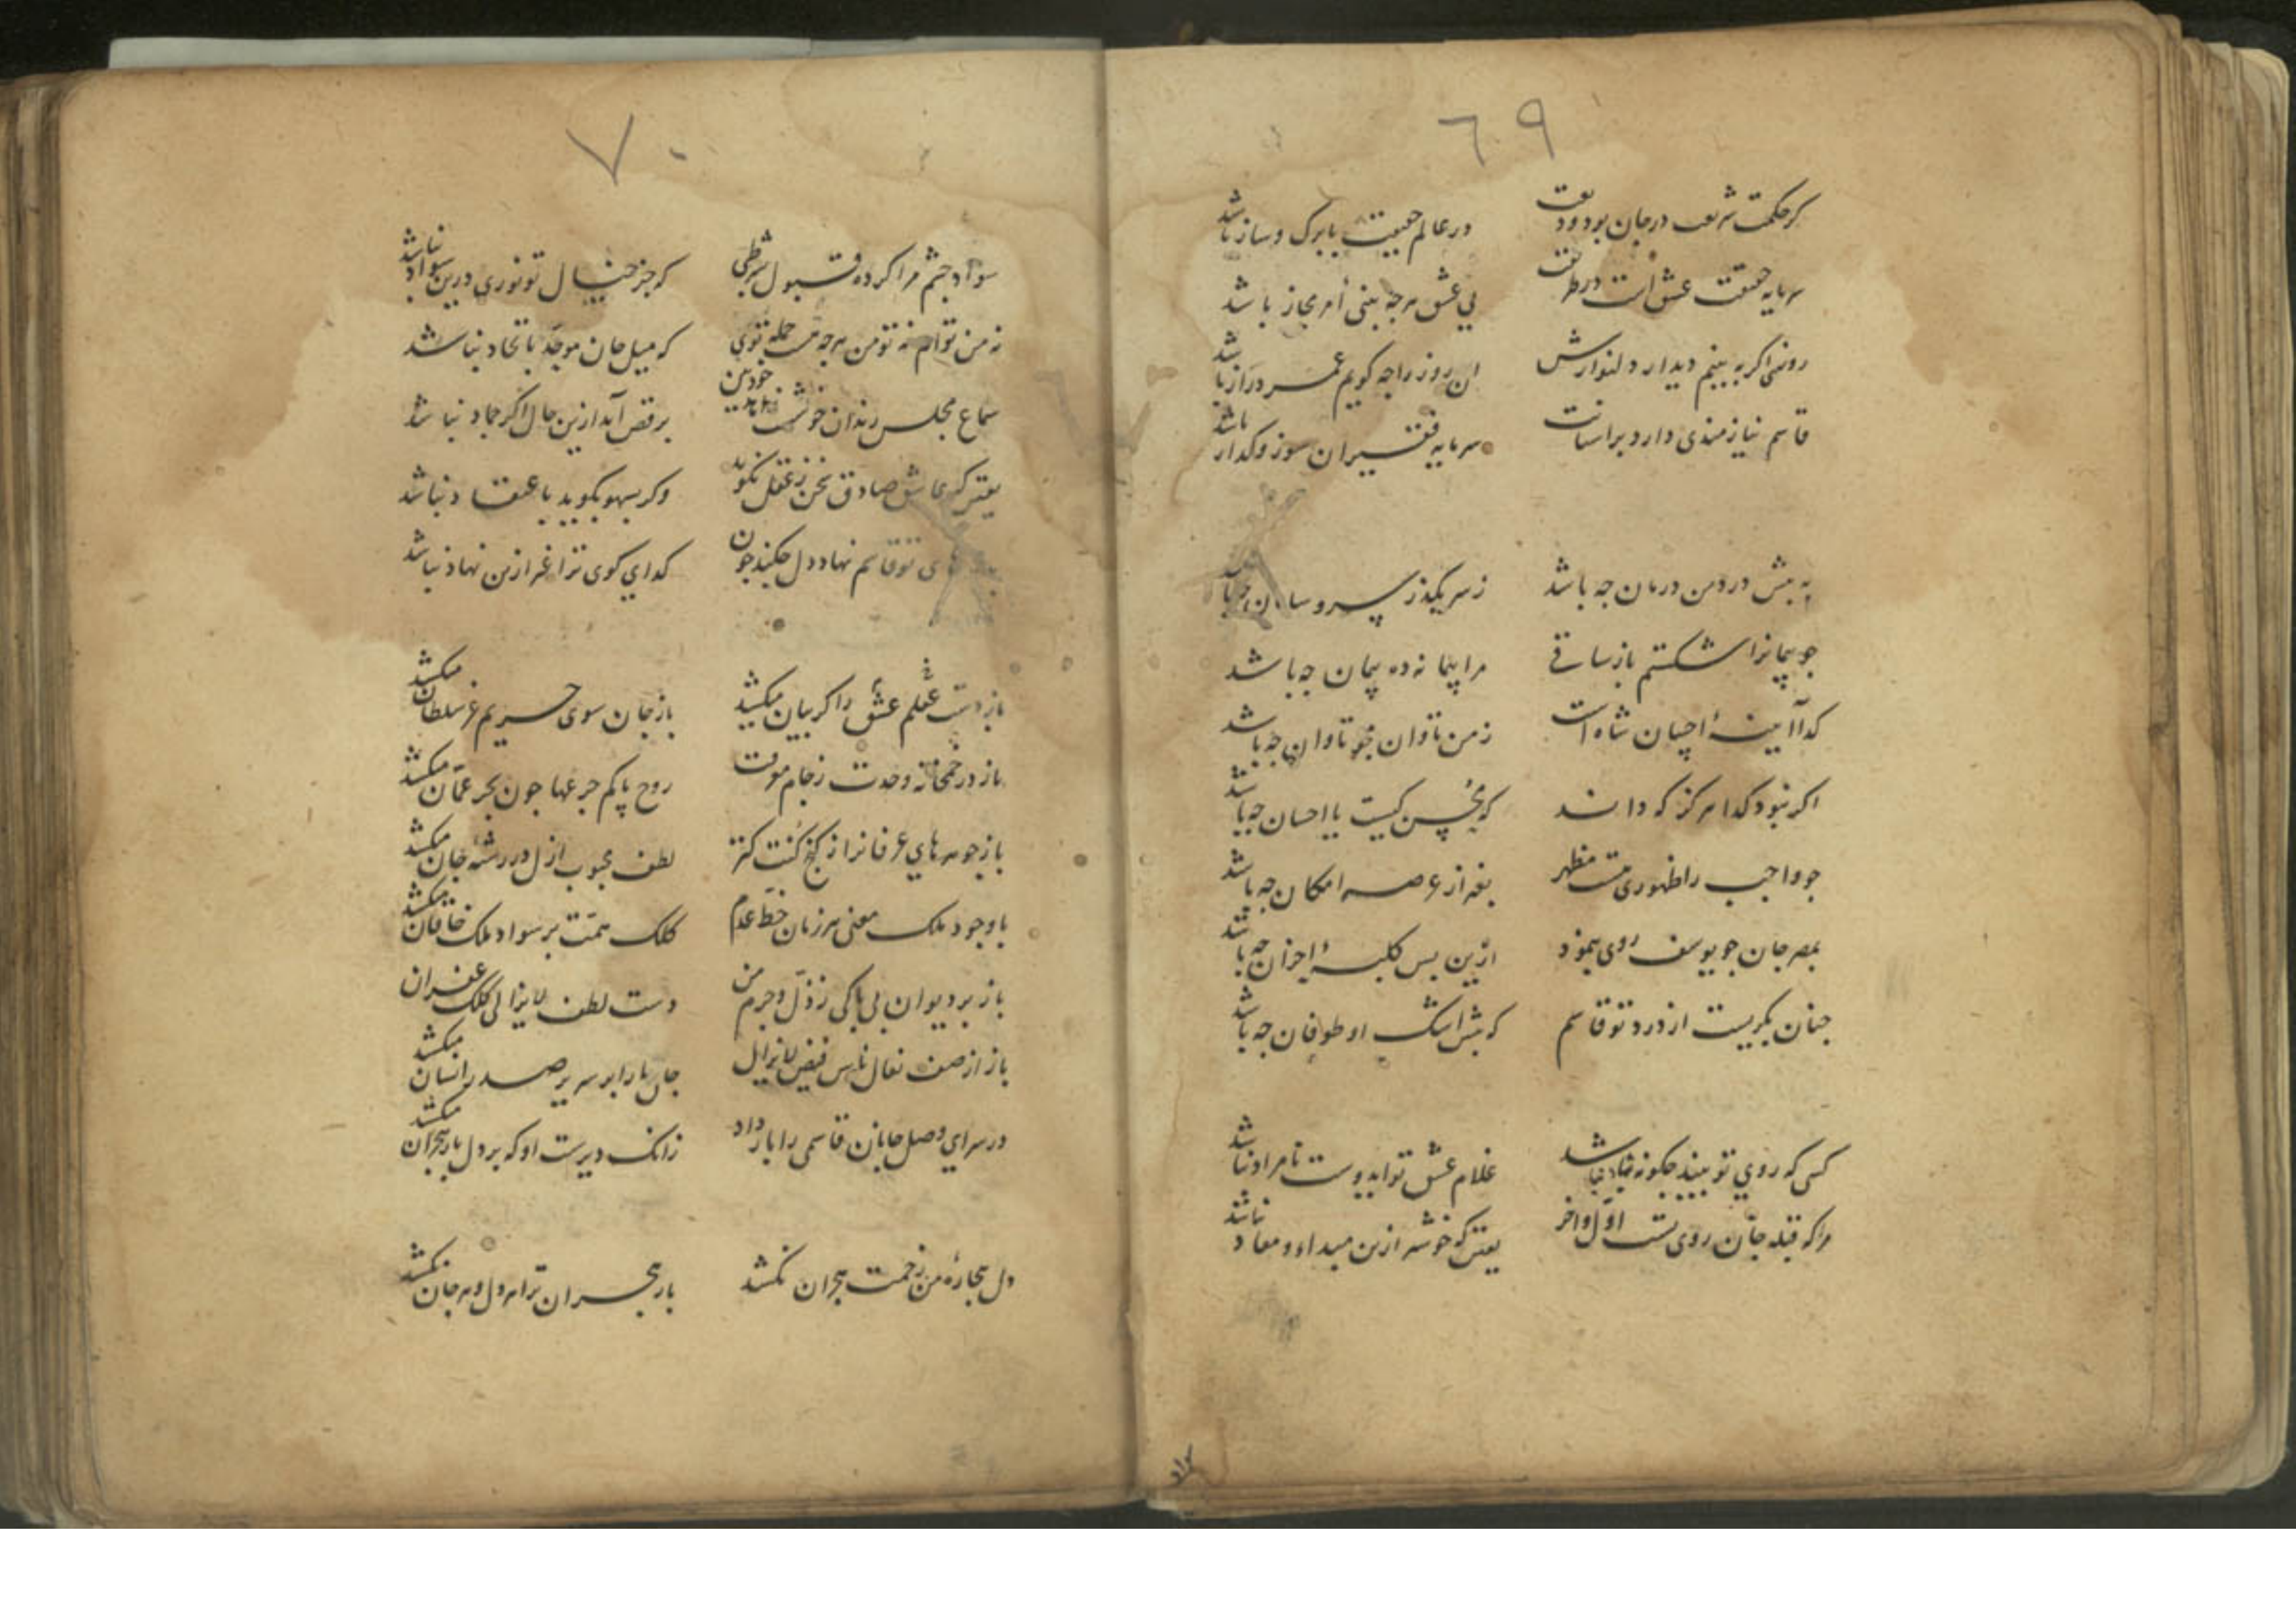 ٦٩
کر حکمت شریف در جان بود ودیعت در عالم حقیقت بابرک و ساز باشد
سرمایه حقیقت عشق است در طریقت بی عشق هرجه بینی أمر مجاز باشد
روزی اکر به بینم دیدار دلنوارش ان روز راجه کویم عمر دراز باشد
قاسم نیازمندی دارد براستانت سرمایه فقیران سوز و کداز باشد
به پیش درد من درمان جه باشد ز سر بکذر سر و سامان جه باشد
جو پیمانرا شکستم باز ساقی مرا پیمانه ده پیمان جه باشد
کدا آیینهٔ احسان شاه است ز من تاوان مجو تاوان جه باشد
اکر نبود کدا هرکز که داند که محسن کیست یا احسان جه باشد
جو واجب را ظهوری هست مظهر بغیر از عرصه امکان جه باشد
بمصر جان جو یوسف روی بنمود ازین بس کلبهٔ احزان جه باشد
جنان بکریست از درد تو قاسم که پیش اشک او طوفان جه باشد
کسی که روی تو بیند جکونه شاد نباشد غلام عشق تو ای دوست نامراد نباشد
مرا که قبله جان روی تست اوّل و اخر یقین که خوشتر ازین مبداء و معاد نباشد
سواد
٧٠
سواد جشم مرا کرده قبول بشرطی که جز خیال تو نوری درین سواد نباشد
نه من توام نه تو من هرجه هست جمله توی که میل جان موحّد باتحاد نباشد
سماع مجلس رندان خوشست خودبین برقص آید ازین حال اکر جماد نباشد
یقین که عاشق صادق سخن ز عقل نکوید وکر بسهو بکوید باعتقاد نباشد
تو قاسم نهاد دل جکند جون کدای کوی ترا غیر ازین نهاد نباشد
باز دست عقلم عشق را کریبان میکشد باز جان سوی حریم عز سلطان میکشد
باز در خمخانه وحدت ز جام معرفت روح پاکم جرعها جون بحر عمّان میکشد
باز جوهرهای عرفانرا از کنج کنت کنز لطف محبوب ازل در رشته جان میکشد
با وجود ملک معنی هر زمان خطّ عدم کلک همّت بر سواد ملک خاقان میکشد
باز بر دیوان بی باکی ز ذلّ و جرم من دست لطف لایزالی کلک غفران میکشد
باز از صف نعال ناس فیض لایزال جان ما را بر سریر صدر انسان میکشد
در سرای وصل جانان قاسمی را بار داد زانک دیرست او که بر دل بار هجران میکشد
دل بیجارهٔ من زحمت هجران نکشد بار هجران ترا هم دل و هم جان نکشد